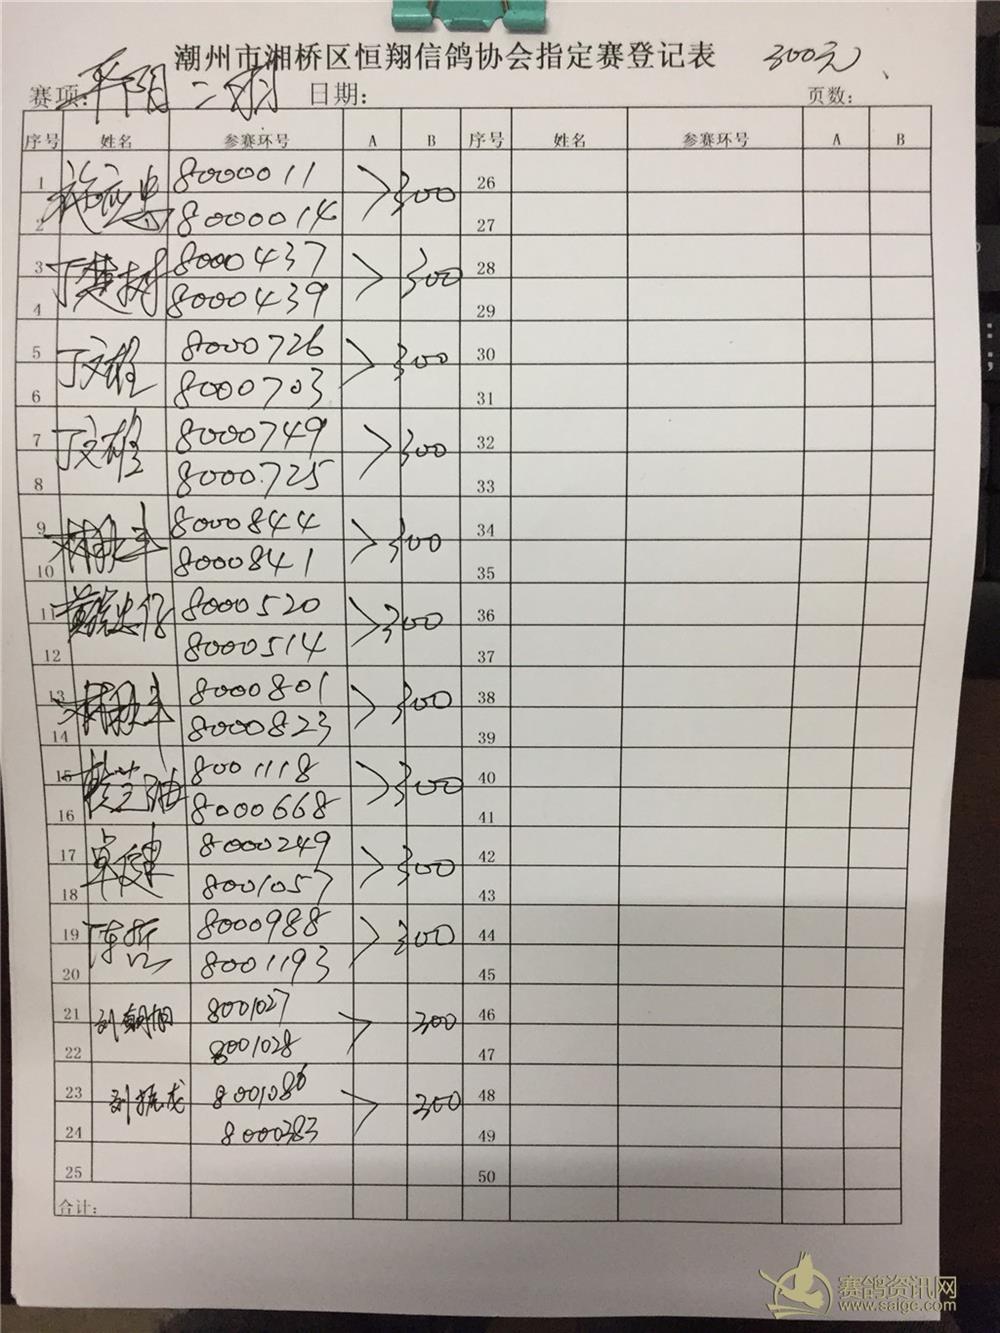 潮州市湘桥区恒翔信鸽协会指定赛登记表 300元
赛项: 平阴二羽 日期: 页数:
序号 姓名 参赛环号 A B 序号 姓名 参赛环号 A B
1 8000011 300 26
2 8000014 27
3 丁楚树 8000437 300 28
4 8000439 29
5 丁文雄 8000726 300 30
6 8000703 31
7 丁文雄 8000749 300 32
8 8000725 33
9 8000844 300 34
10 8000841 35
11 8000520 300 36
12 8000514 37
13 8000801 300 38
14 8000823 39
15 8001118 300 40
16 8000668 41
17 8000249 300 42
18 8001057 43
19 陈哲 8000988 300 44
20 8001193 45
21 8001027 300 46
22 8001028 47
23 刘振龙 8001086 300 48
24 8000383 49
25 50
合计:
赛鸽资讯网
www.saigc.com